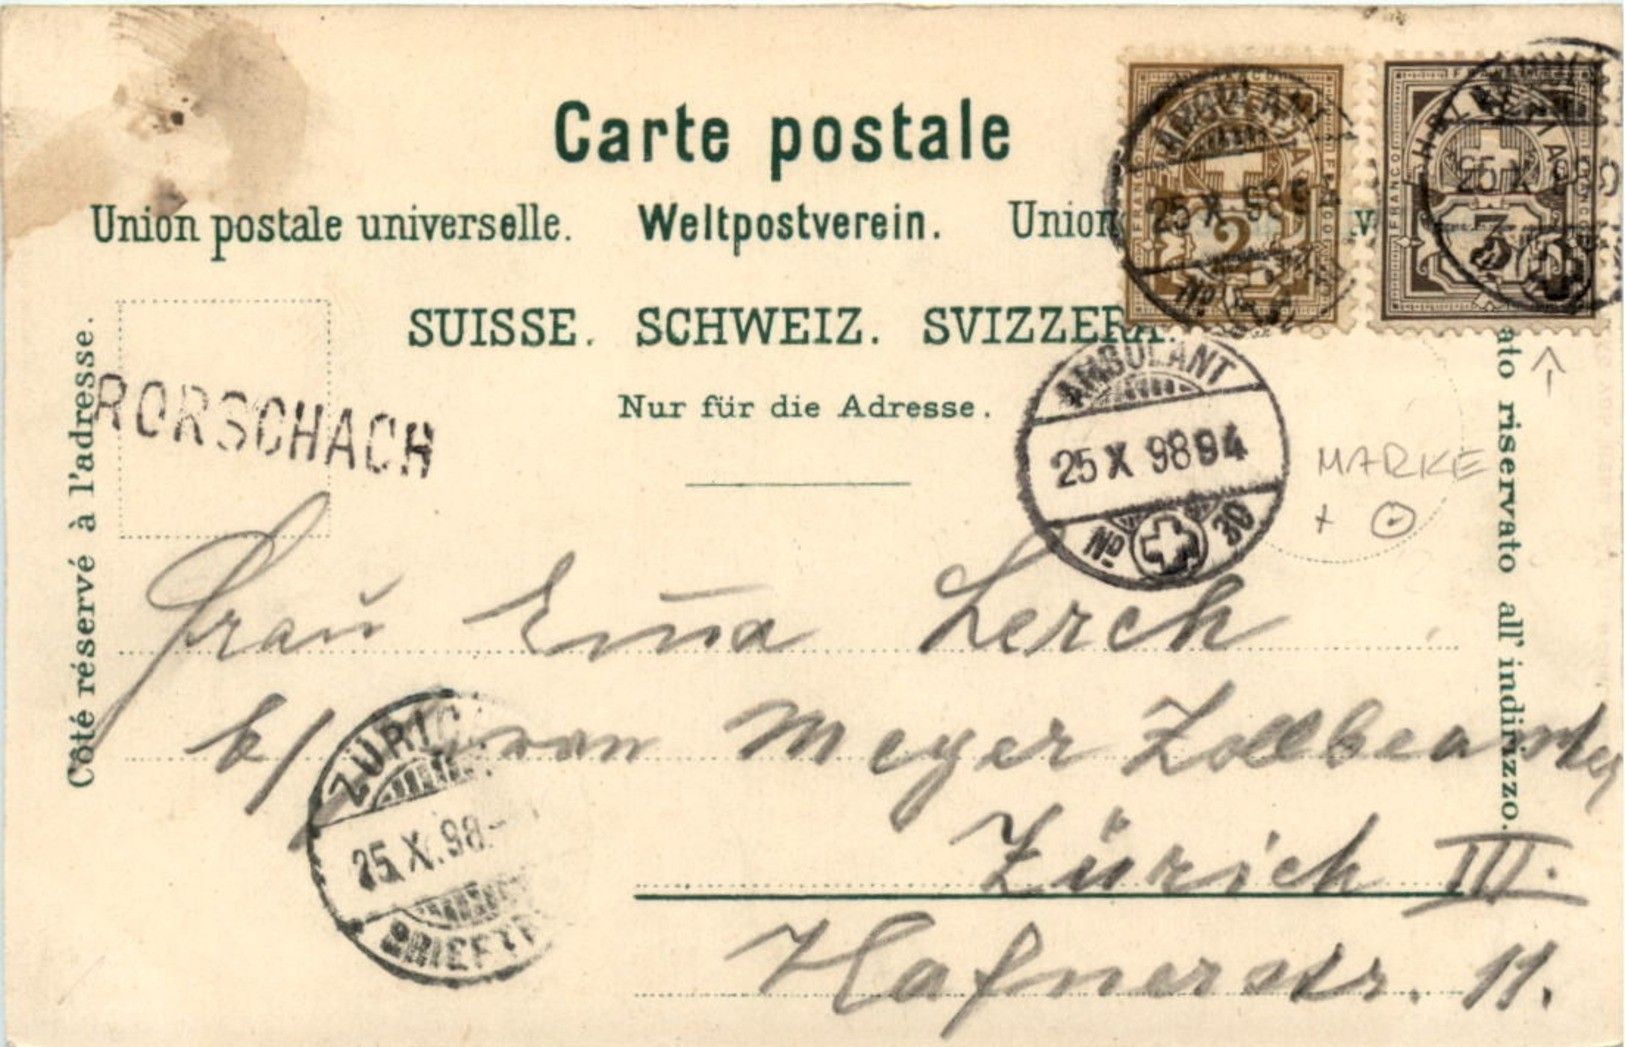 Carte postale
Union postale universelle. Weltpostverein. Union
SUISSE. SCHWEIZ. SVIZZERA.
Nur für die Adresse.
Côté réservé à l'adresse.
ato riservato all' indirizzo.
RORSCHACH
FRANCO
2
AMBULANT
25 X 98
No
FRANCO
3
25 X 98
AMBULANT
25 X 98 94
No 30
MARKE
+
Frau Emma Lerch
b/ von Meyer Zollbeamter
Zürich III.
Hafnerstr. 11.
ZÜRIC
25.X.98.-
BRIEFTR